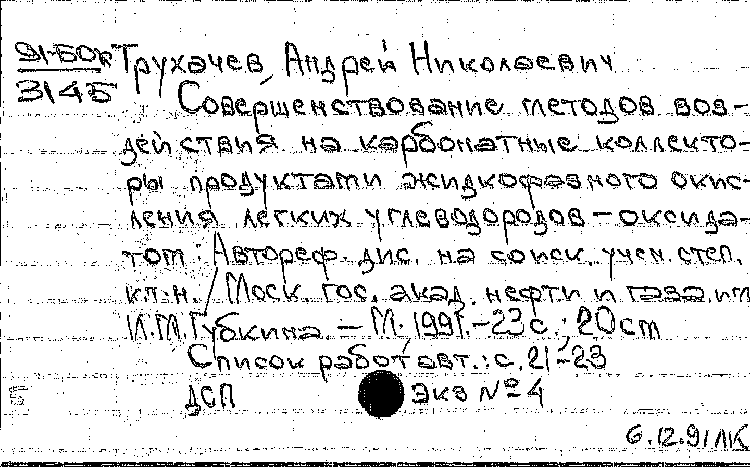 91-60к Трухачев, Андрей Николаевич
3145 Совершенствование методов воз-
действия на карбонатные коллекто-
ры продуктами жидкофазного окис-
ления легких углеводородов – оксида-
том: Автореф. дис. на соиск. учен. степ.
к.т.н. / Моск. гос. акад. нефти и газа им
И.М.Губкина. – М. 1991. – 23 с.; 20 cm
Список работ авт.: с. 21-23
ДСП Экз № 4
6.12.91 ЛК